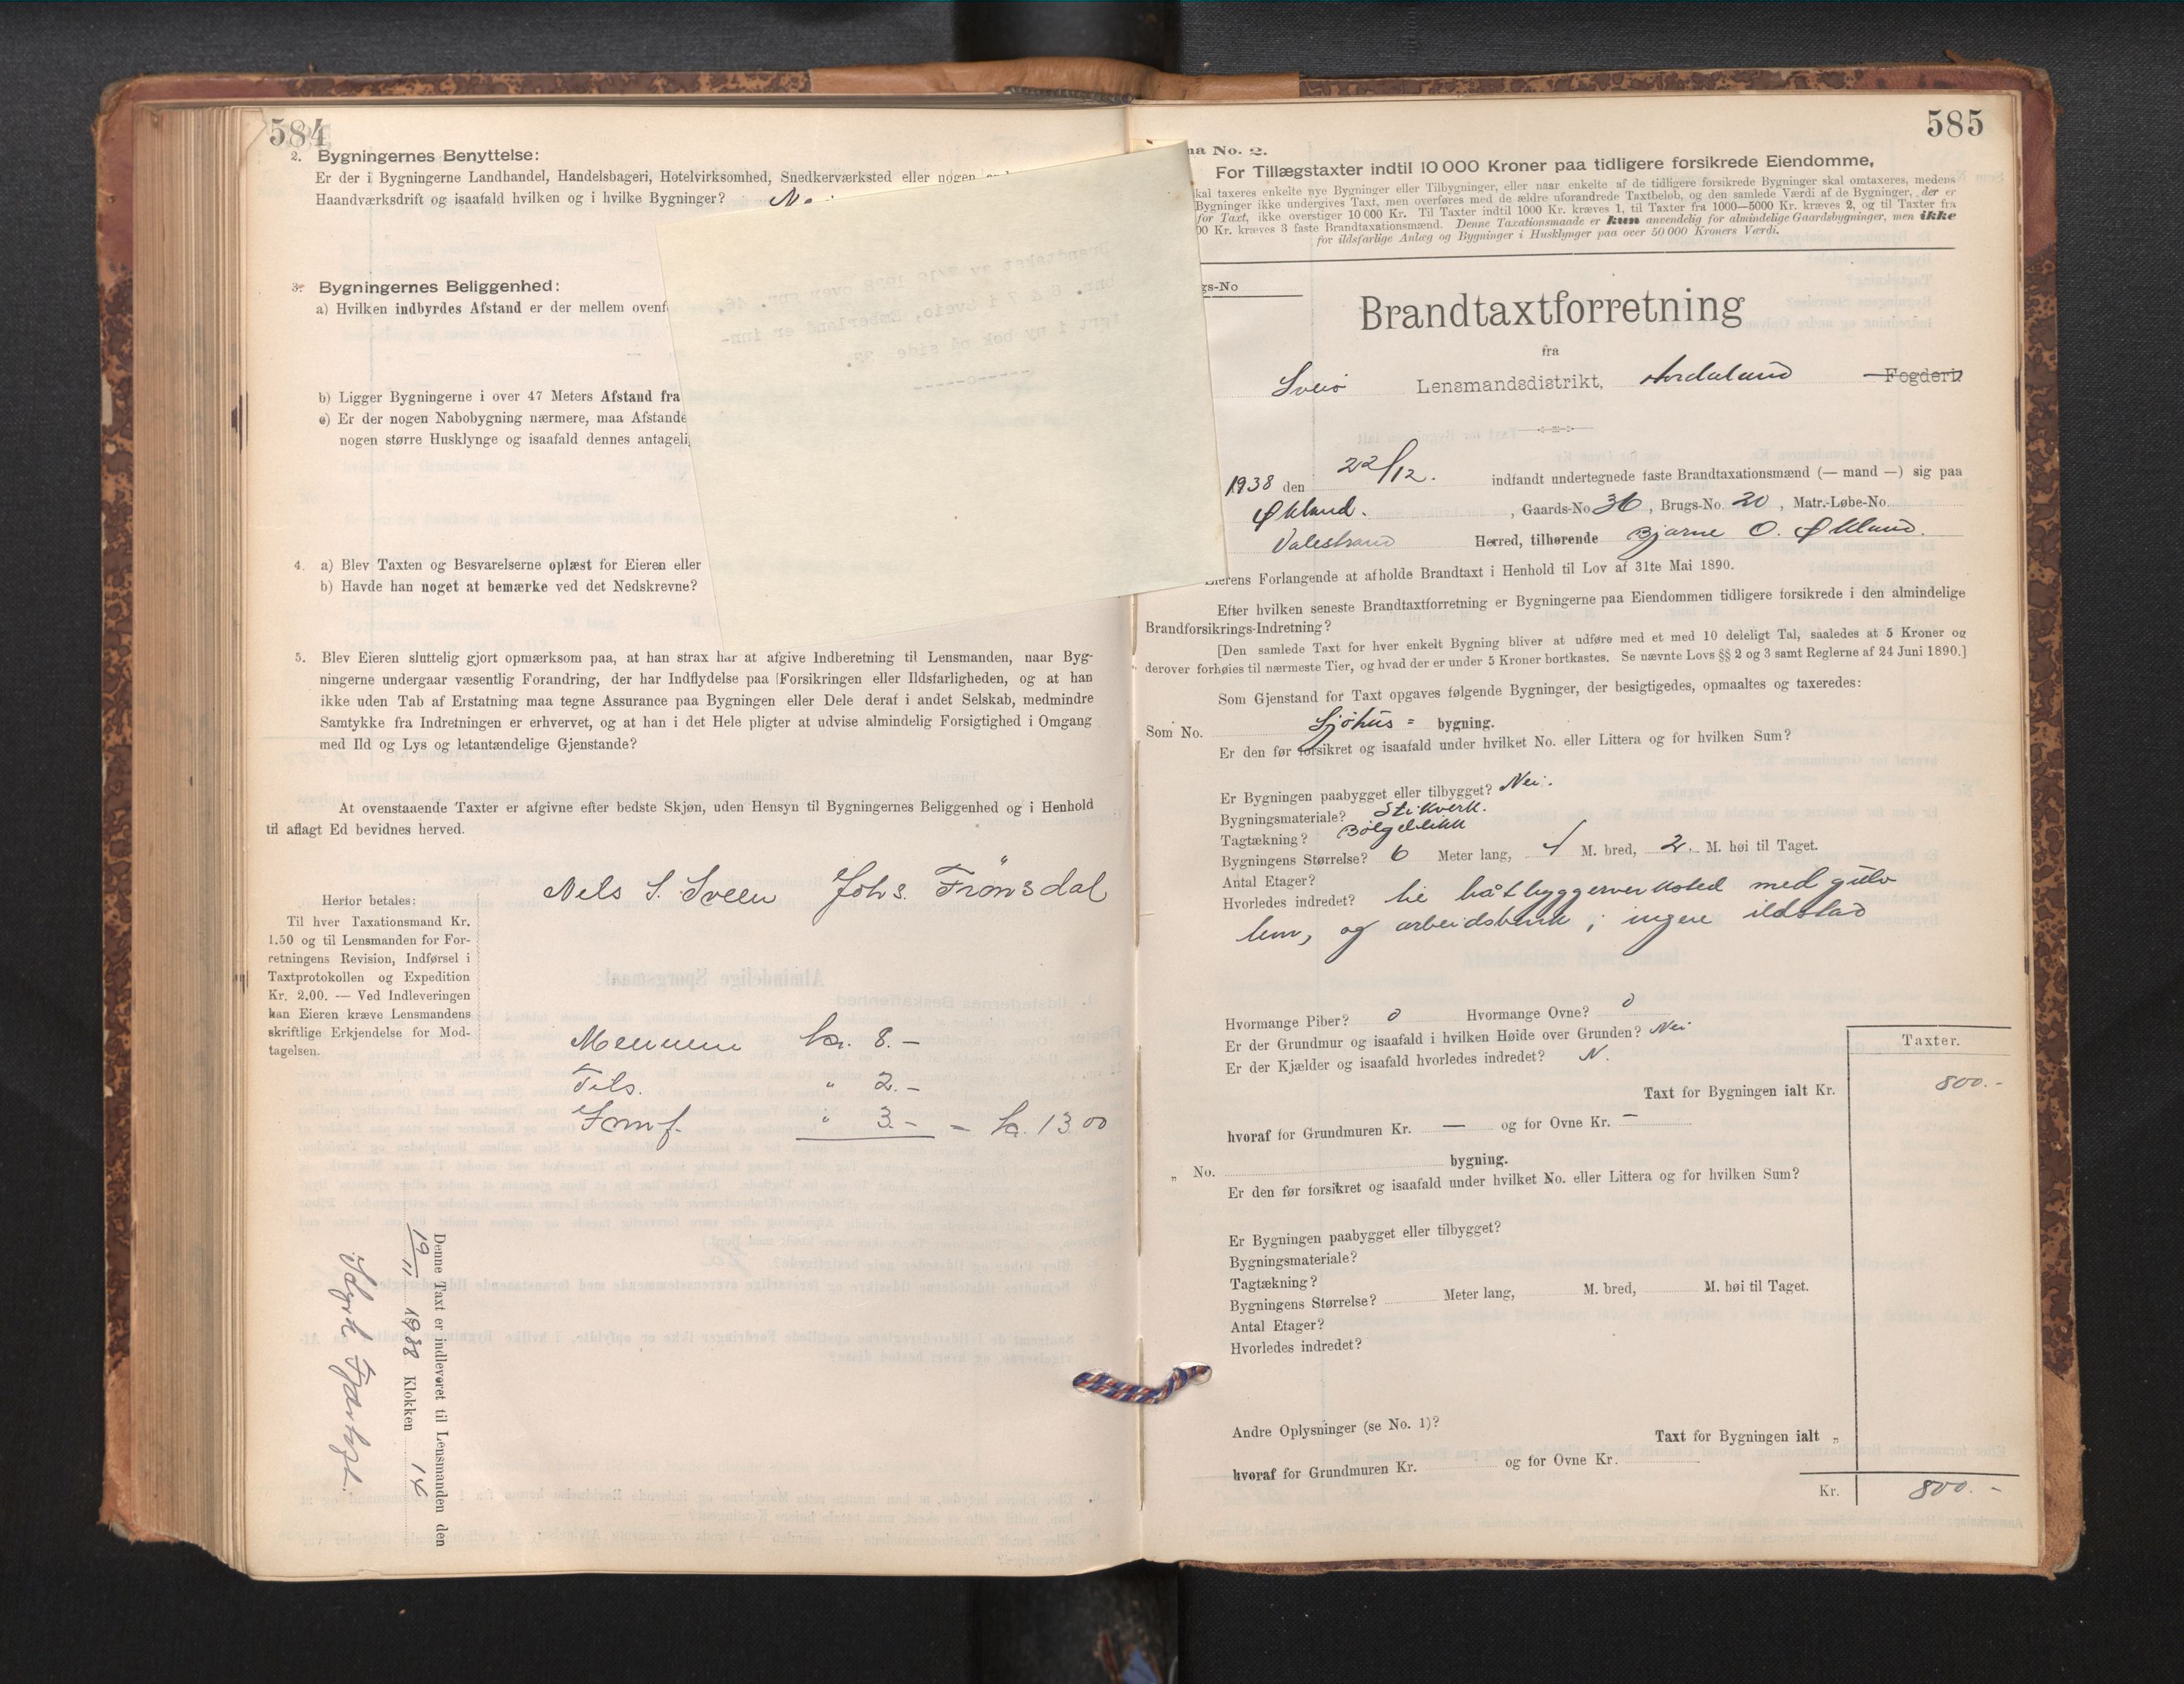 584
2. Bygningernes Benyttelse:
Er der i Bygningerne Landhandel, Handelsbageri, Hotelvirksomhed, Snedkerværksted eller nogen
Haandværksdrift og isaafald hvilken og i hvilke Bygninger?
3. Bygningernes Beliggenhed:
a) Hvilken indbyrdes Afstand er der mellem ovenf
b) Ligger Bygningerne i over 47 Meters Afstand fra
c) Er der nogen Nabobygning nærmere, maa Afstande
nogen større Husklynge og isaafald dennes antageli
4. a) Blev Taxten og Besvarelserne oplæst for Eieren eller
b) Havde han noget at bemærke ved det Nedskrevne?
5. Blev Eieren sluttelig gjort opmærksom paa, at han strax har at afgive Indberetning til Lensmanden, naar Byg-
ningerne undergaar væsentlig Forandring, der har Indflydelse paa Forsikringen eller Ildsfarligheden, og at han
ikke uden Tab af Erstatning maa tegne Assurance paa Bygningen eller Dele deraf i andet Selskab, medmindre
Samtykke fra Indretningen er erhvervet, og at han i det Hele pligter at udvise almindelig Forsigtighed i Omgang
med Ild og Lys og letantændelige Gjenstande?
At ovenstaaende Taxter er afgivne efter bedste Skjøn, uden Hensyn til Bygningernes Beliggenhed og i Henhold
til aflagt Ed bevidnes herved.
Nels S. Sveen Johs. Frönsdal
Herfor betales:
Til hver Taxationsmand Kr.
1.50 og til Lensmanden for For-
retningens Revision, Indførsel i
Taxtprotokollen og Expedition
Kr. 2.00. — Ved Indleveringen
kan Eieren kræve Lensmandens
skriftlige Erkjendelse for Mod-
tagelsen.
Mennene kr. 8.—
Tils. " 2.—
Jornf. " 3.— — kr. 13.00
Denne Taxt er indleveret til Lensmanden den
19/11 1938 Klokken 14
585
ma No. 2.
For Tillægstaxter indtil 10 000 Kroner paa tidligere forsikrede Eiendomme,
kal taxeres enkelte nye Bygninger eller Tilbygninger, eller naar enkelte af de tidligere forsikrede Bygninger skal omtaxeres, medens
Bygninger ikke undergives Taxt, men overføres med de ældre uforandrede Taxtbeløb, og den samlede Værdi af de Bygninger, der er
for Taxt, ikke overstiger 10 000 Kr. Til Taxter indtil 1000 Kr. kræves 1, til Taxter fra 1000—5000 Kr. kræves 2, og til Taxter fra
00 Kr. kræves 3 faste Brandtaxationsmænd. Denne Taxationsmaade er kun anvendelig for almindelige Gaardsbygninger, men ikke
for ildsfarlige Anlæg og Bygninger i Husklynger paa over 50 000 Kroners Værdi.
gs-No
Brandtaxtforretning
fra
Sveio Lensmandsdistrikt, Hordaland Fogderi
1938 den 22/12. indfandt undertegnede faste Brandtaxationsmænd (— mand —) sig paa
Økland. , Gaards-No 36 , Brugs-No. 20 , Matr.-Løbe-No.
Valestrand Herred, tilhørende Bjarne O. Økland.
Eierens Forlangende at afholde Brandtaxt i Henhold til Lov af 31te Mai 1890.
Efter hvilken seneste Brandtaxtforretning er Bygningerne paa Eiendommen tidligere forsikrede i den almindelige
Brandforsikrings-Indretning?
[Den samlede Taxt for hver enkelt Bygning bliver at udføre med et med 10 deleligt Tal, saaledes at 5 Kroner og
derover forhøies til nærmeste Tier, og hvad der er under 5 Kroner bortkastes. Se nævnte Lovs §§ 2 og 3 samt Reglerne af 24 Juni 1890.]
Som Gjenstand for Taxt opgaves følgende Bygninger, der besigtigedes, opmaaltes og taxeredes:
Som No. Sjøhus = bygning.
Er den før forsikret og isaafald under hvilket No. eller Littera og for hvilken Sum?
Er Bygningen paabygget eller tilbygget? Nei.
Bygningsmateriale? Stikverk.
Tagtækning? Bølgeblikk
Bygningens Størrelse? 6 Meter lang, 4 M. bred, 2. M. høi til Taget.
Antal Etager?
Hvorledes indredet? til båtbyggerverksted med gulv
lem, og arbeidsbenk; ingen ildstad
Hvormange Piber? 0 Hvormange Ovne? 0
Er der Grundmur og isaafald i hvilken Høide over Grunden? Nei
Er der Kjælder og isaafald hvorledes indredet? N.
Taxter.
Taxt for Bygningen ialt Kr. 800.-
hvoraf for Grundmuren Kr. — og for Ovne Kr. —
„ No. bygning.
Er den før forsikret og isaafald under hvilket No. eller Littera og for hvilken Sum?
Er Bygningen paabygget eller tilbygget?
Bygningsmateriale?
Tagtækning?
Bygningens Størrelse? Meter lang, M. bred, M. høi til Taget.
Antal Etager?
Hvorledes indredet?
Andre Oplysninger (se No. 1)?
Taxt for Bygningen ialt „
hvoraf for Grundmuren Kr. og for Ovne Kr.
Kr. 800.-